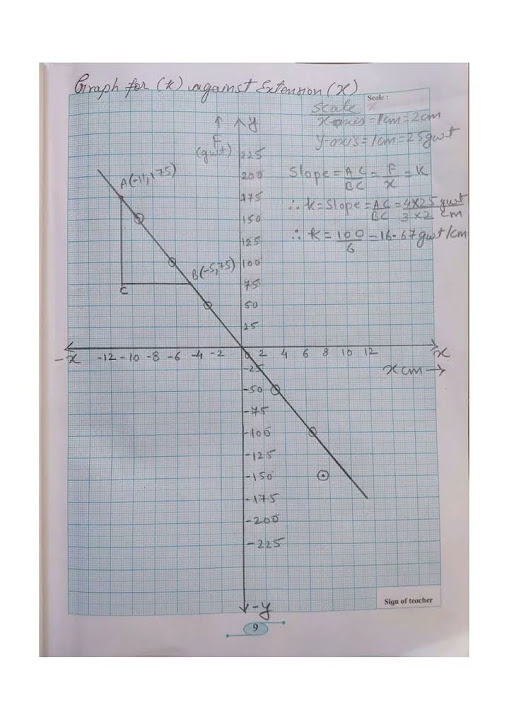 Graph for (k) against Extension (x)
Scale :
Scale
x-axis = 1cm = 2cm
y-axis = 1cm = 25gwt
↑ y
↑
F
(gwt)
225
200
175
150
125
100
75
50
25
Slope = AC/BC = F/x = K
∴ k = Slope = AC/BC = 4×25/3×2 gwt/cm
∴ k = 100/6 = 16.67gwt/cm
A(-11,175)
B(-5,75)
C
-x -12 -10 -8 -6 -4 -2 0 2 4 6 8 10 12 x
x cm →
-25
-50
-75
-100
-125
-150
-175
-200
-225
-y
Sign of teacher
9